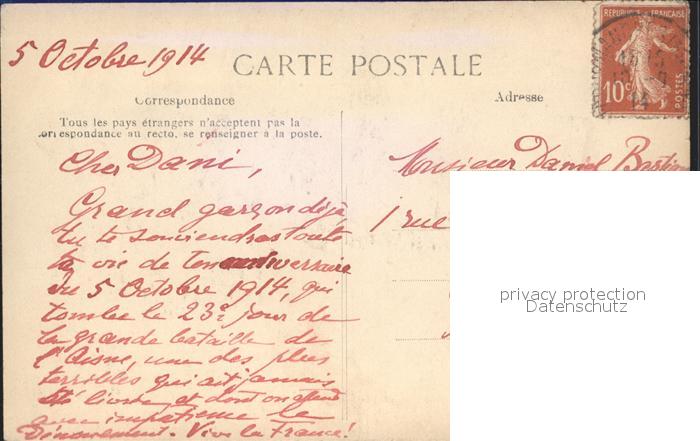 5 Octobre 1914
CARTE POSTALE
REPUBLIQUE FRANÇAISE
10c
POSTES
14
Correspondance
Adresse
Tous les pays étrangers n'acceptent pas la
correspondance au recto, se renseigner à la poste.
Cher Dani,
Grand garçon déjà
tu te souviendras toute
ta vie de ton anniversaire
du 5 Octobre 1914, qui
tombe le 23e jour de
la grande bataille de
l'Aisne, une des plus
terribles qui ait jamais
été livrée et dont on attend
avec impatience le
dénouement. Vive la France!
Monsieur Daniel
1 rue
privacy protection
Datenschutz